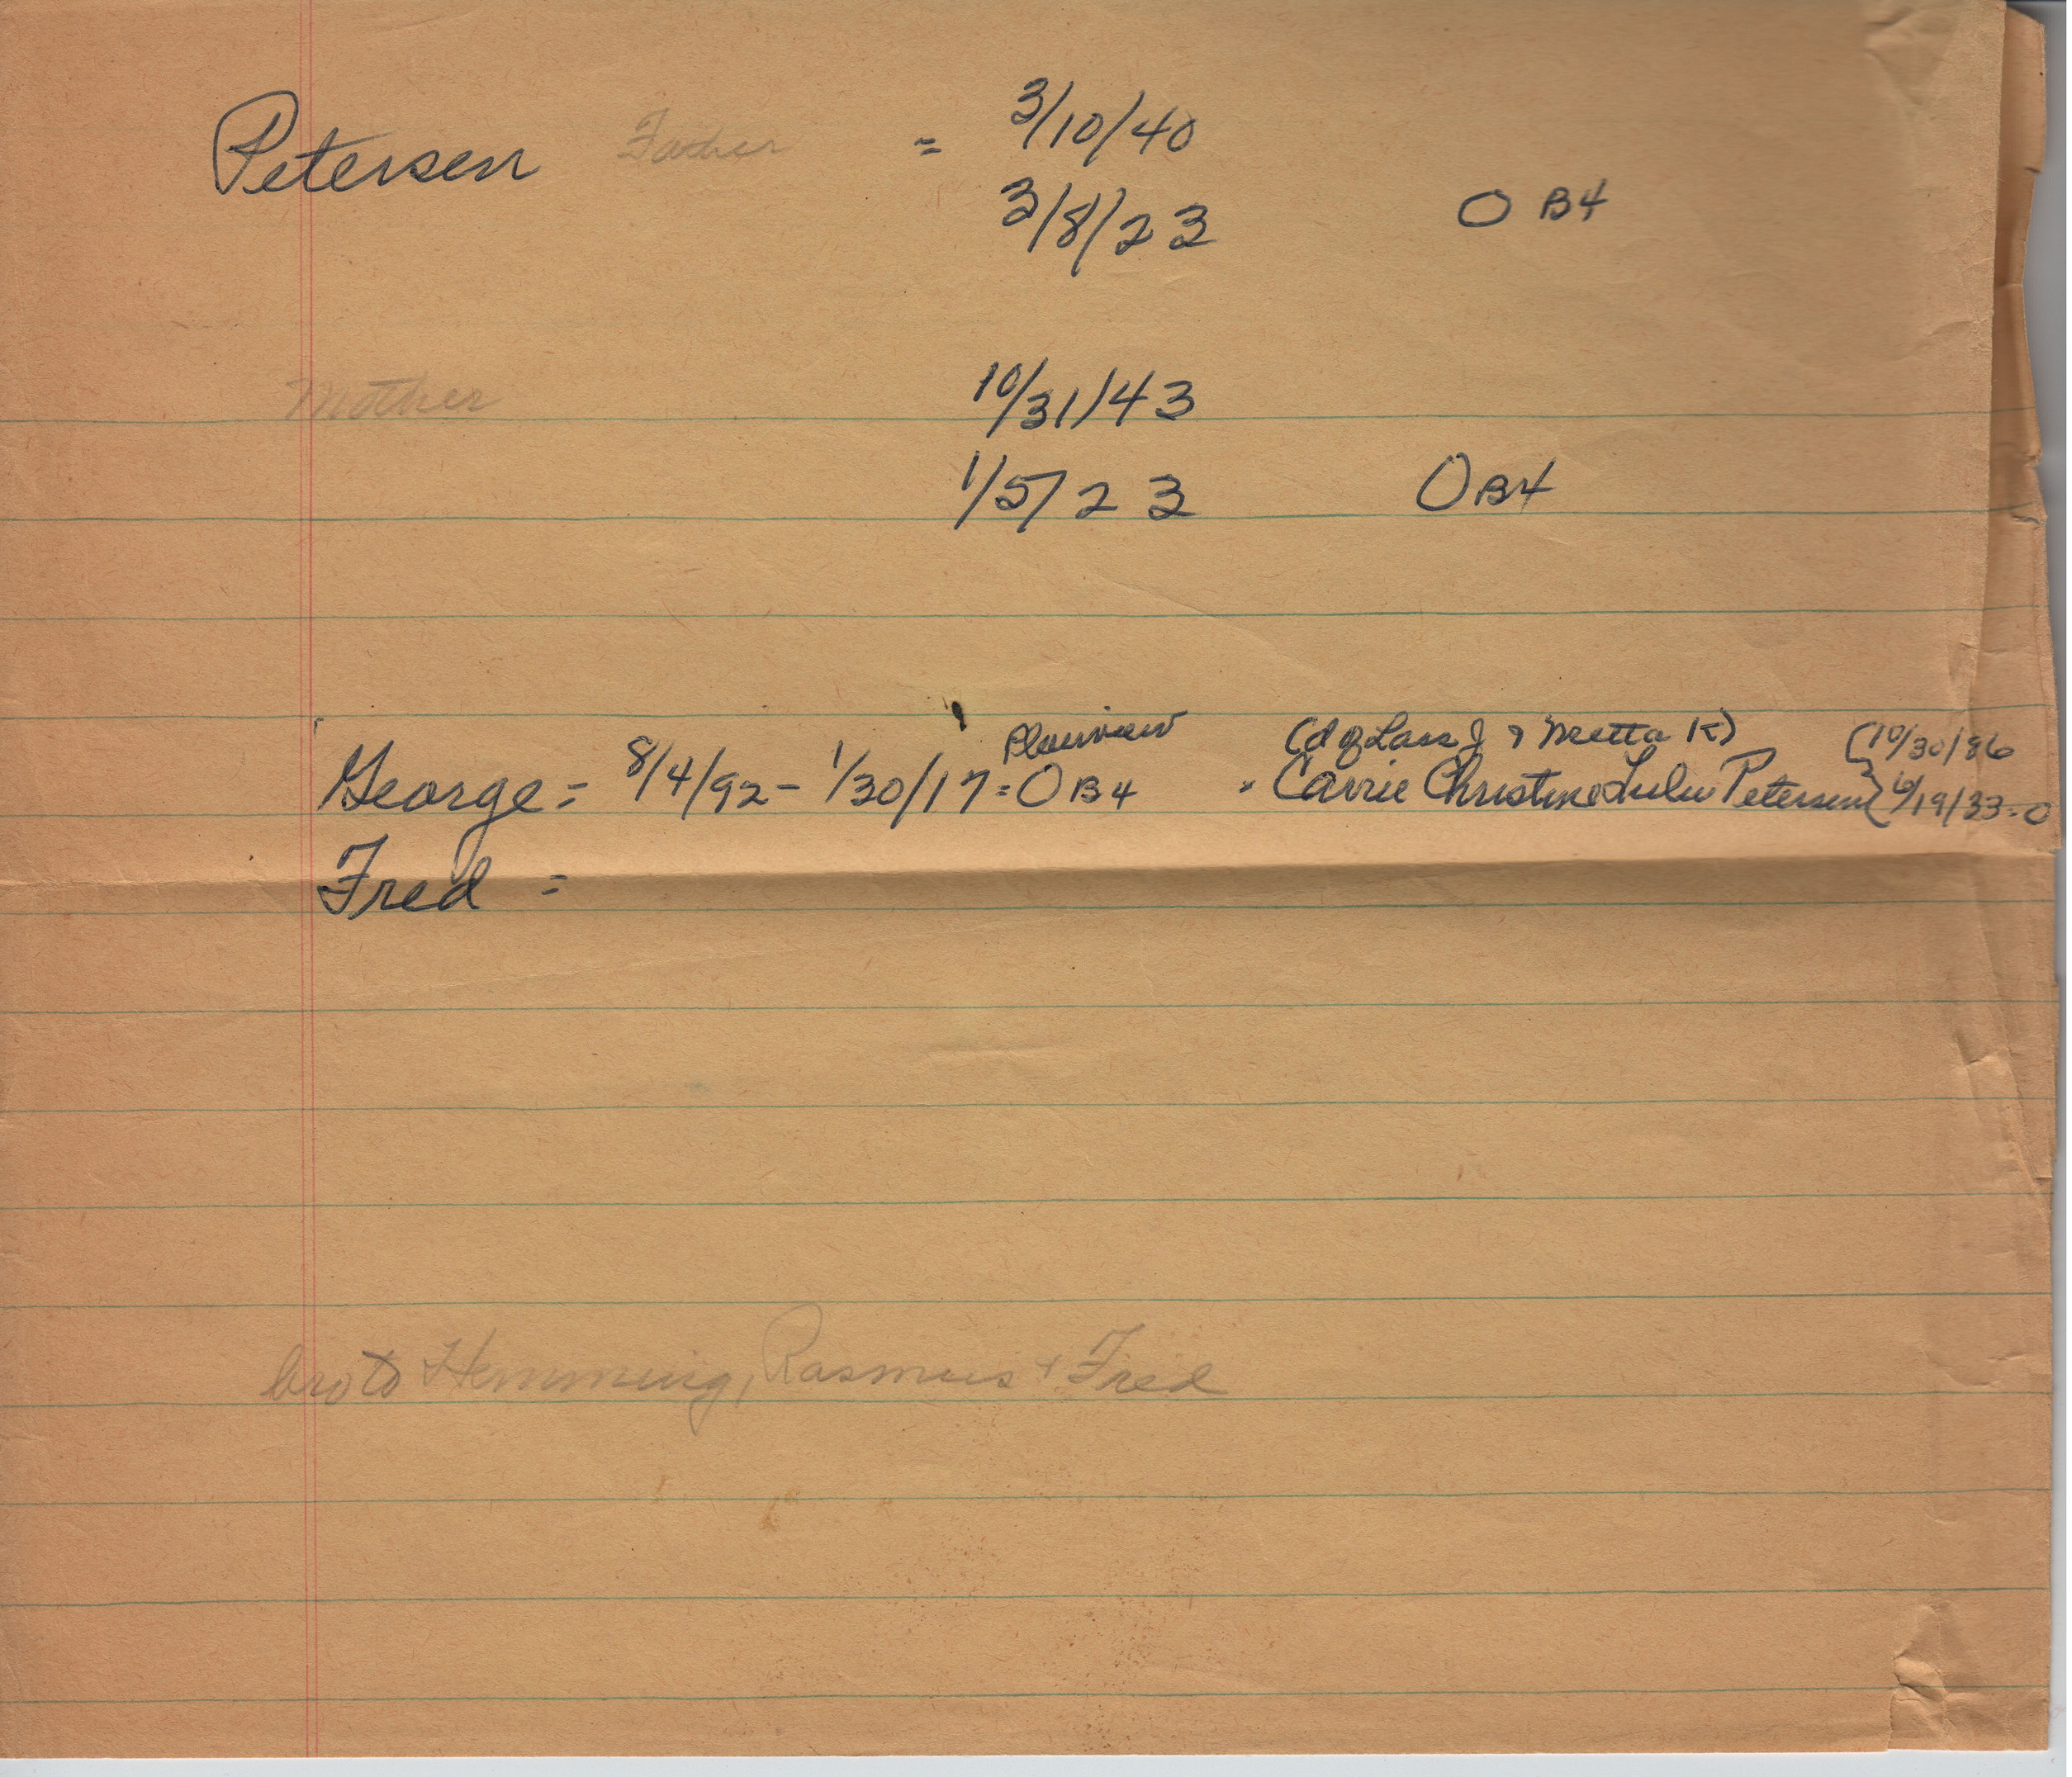 Petersen Father = 3/10/40
3/8/23 O B4
Mother 10/31/43
1/5/23 O B4
Plainview (d of Lars J & Metta K) (10/30/86
George = 8/4/92 - 1/30/17 = O B4 . Carrie Christine Lulu Petersen 6/19/33 - O
Fred =
bro to Hemming, Rasmus + Fred